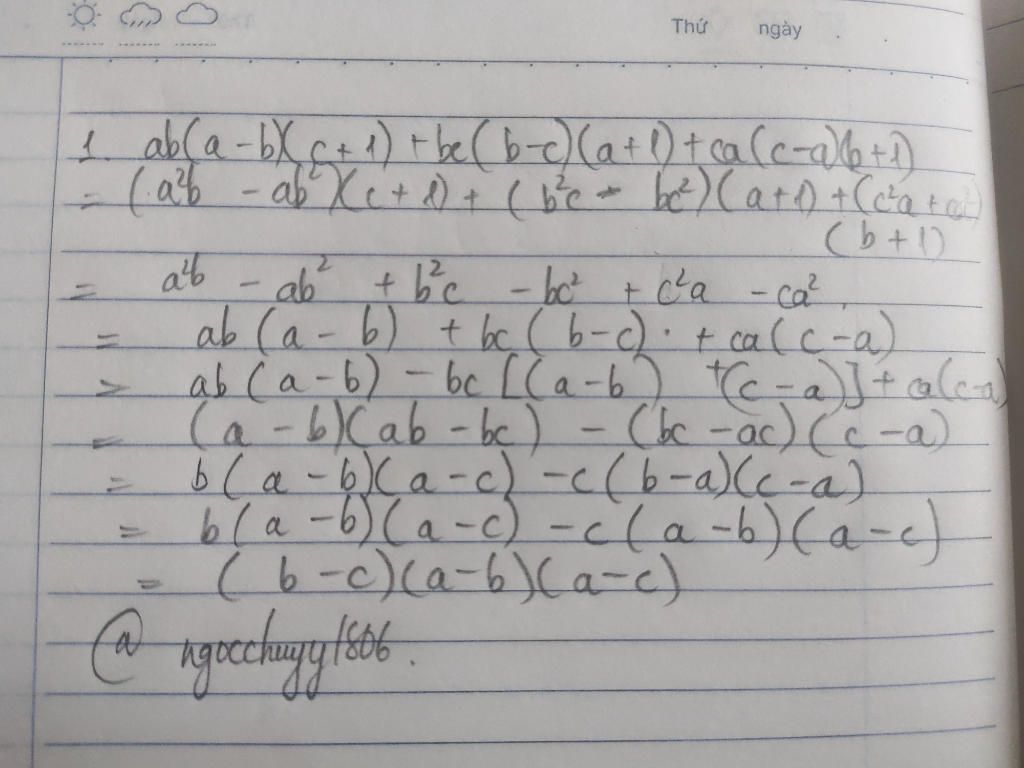 Thứ ngày
1. ab(a-b)(c+1)+bc(b-c)(a+1)+ca(c-a)(b+1)
= (a²b - ab²)(c+1) + (b²c - bc²)(a+1)+(c²a+ca²)
(b+1)
= a²b - ab² + b²c - bc² + c²a - ca².
= ab(a-b) + bc(b-c) + ca(c-a)
= ab(a-b) - bc[(a-b) +(c-a)] + ca(c-a)
= (a-b)(ab-bc) - (bc-ac)(c-a)
= b(a-b)(a-c) -c(b-a)(c-a)
= b(a-b)(a-c) -c(a-b)(a-c)
= (b-c)(a-b)(a-c)
@ ngocchuyy1806.